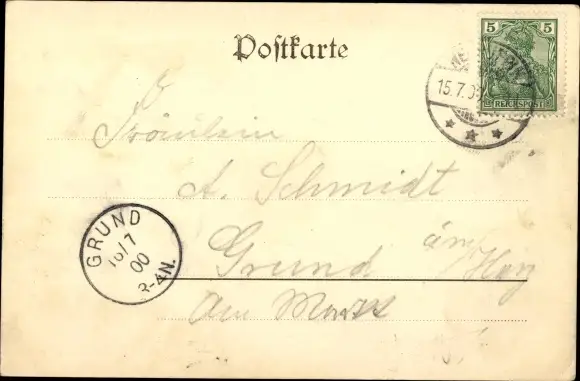 Postkarte
5 5
REICHSPOST
15.7.0
Fräulein
A. Schmidt
GRUND
16/7
00
3-4N.
Grund am Harz
Am Markt